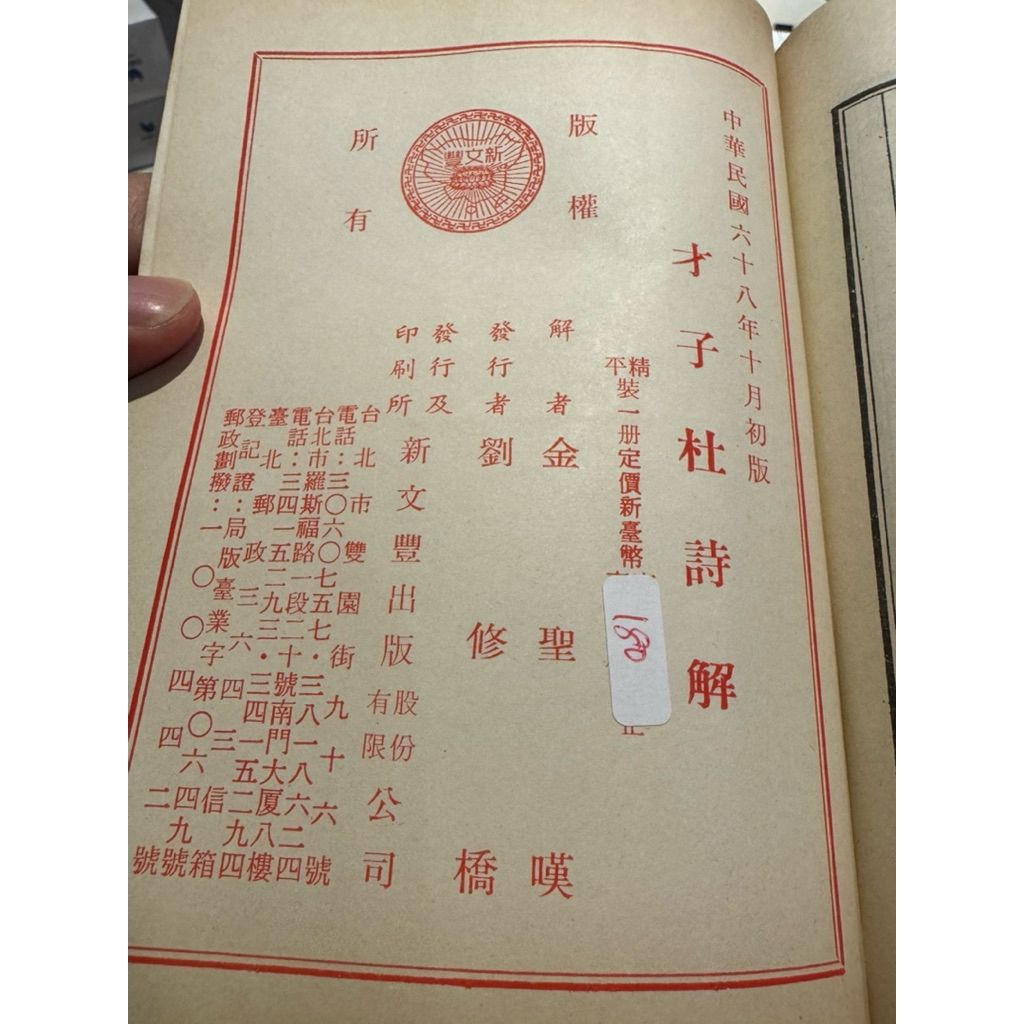 中華民國六十八年十月初版
才子杜詩解
精平裝一册定價新臺幣
180
版權所有
新文豐
解者 金聖嘆
發行者 劉修橋
發行及印刷所 新文豐出版股份有限公司
台北市雙園街九十六號
電話：三〇六〇七五七・三八一八六二四
台北市羅斯福路一段二十號南門大厦八樓
電話：三四一五二九三・三四一五二九四
臺北郵政三六四三信箱
登記證：局版臺業字第〇六四九號
郵政劃撥：一〇〇四四二號